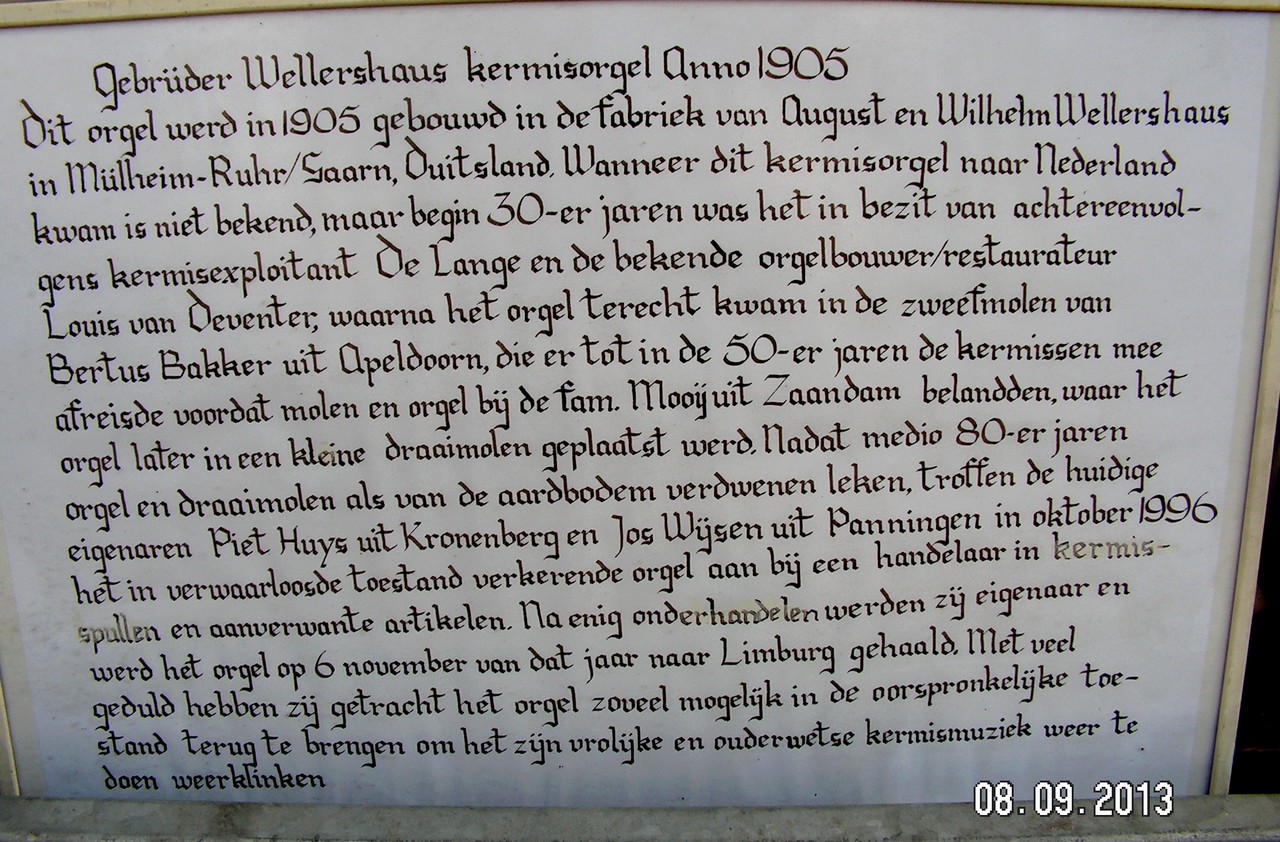 Gebrüder Wellershaus kermisorgel Anno 1905
Dit orgel werd in 1905 gebouwd in de fabriek van August en Wilhelm Wellershaus
in Mülheim-Ruhr/Saarn, Duitsland. Wanneer dit kermisorgel naar Nederland
kwam is niet bekend, maar begin 30-er jaren was het in bezit van achtereenvol-
gens kermisexploitant De Lange en de bekende orgelbouwer/restaurateur
Louis van Deventer, waarna het orgel terecht kwam in de zweefmolen van
Bertus Bakker uit Apeldoorn, die er tot in de 50-er jaren de kermissen mee
afreisde voordat molen en orgel bij de fam. Mooij uit Zaandam belandden, waar het
orgel later in een kleine draaimolen geplaatst werd. Nadat medio 80-er jaren
orgel en draaimolen als van de aardbodem verdwenen leken, troffen de huidige
eigenaren Piet Huys uit Kronenberg en Jos Wijsen uit Panningen in oktober 1996
het in verwaarloosde toestand verkerende orgel aan bij een handelaar in kermis-
spullen en aanverwante artikelen. Na enig onderhandelen werden zij eigenaar en
werd het orgel op 6 november van dat jaar naar Limburg gehaald. Met veel
geduld hebben zij getracht het orgel zoveel mogelijk in de oorspronkelijke toe-
stand terug te brengen om het zijn vrolijke en ouderwetse kermismuziek weer te
doen weerklinken
08.09.2013